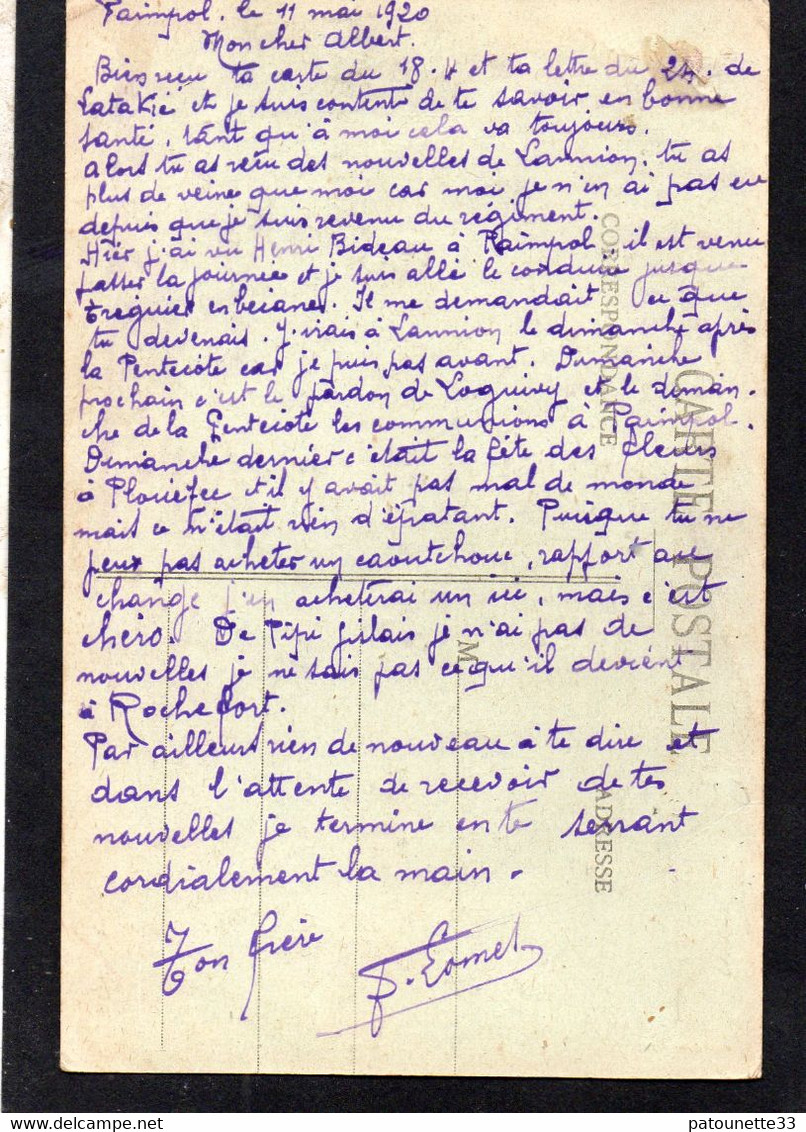 Paimpol. le 11 mai 1920
Mon cher Albert.
Bien reçu ta carte du 18.4 et ta lettre du 24. de
Latakié et je suis contente de te savoir en bonne
santé, tant qu'à moi cela va toujours.
Alors tu as reçu des nouvelles de Lannion. tu as
plus de veine que moi car moi je n'en ai pas eu
depuis que je suis revenu du régiment.
Hier j'ai vu Henri Bideau à Paimpol il est venu
passer la journée et je suis allé le conduire jusque
Treguier en bécane. Il me demandait ce que
tu devenais. J'irais à Lannion le dimanche après
la Pentecôte car je puis pas avant. Dimanche
prochain c'est le pardon de Loguivy et le diman.
che de la Pentecôte les communions à Paimpol.
Dimanche dernier c'était la fête des fleurs
à Plouëzec et il y avait pas mal de monde
mais ce n'était rien d'épatant. Puisque tu ne
peux pas acheter un caoutchouc, rapport au
change j'en acheterai un ici, mais c'est
chéro. De Pipi je n'ai pas de
nouvelles je ne sais pas ce qu'il devient
à Rochefort.
Par ailleurs rien de nouveau à te dire et
dans l'attente de recevoir de tes
nouvelles je termine en te serrant
cordialement la main.
Ton frère
CARTE POSTALE
CORRESPONDANCE
M
ADRESSE
patounette33